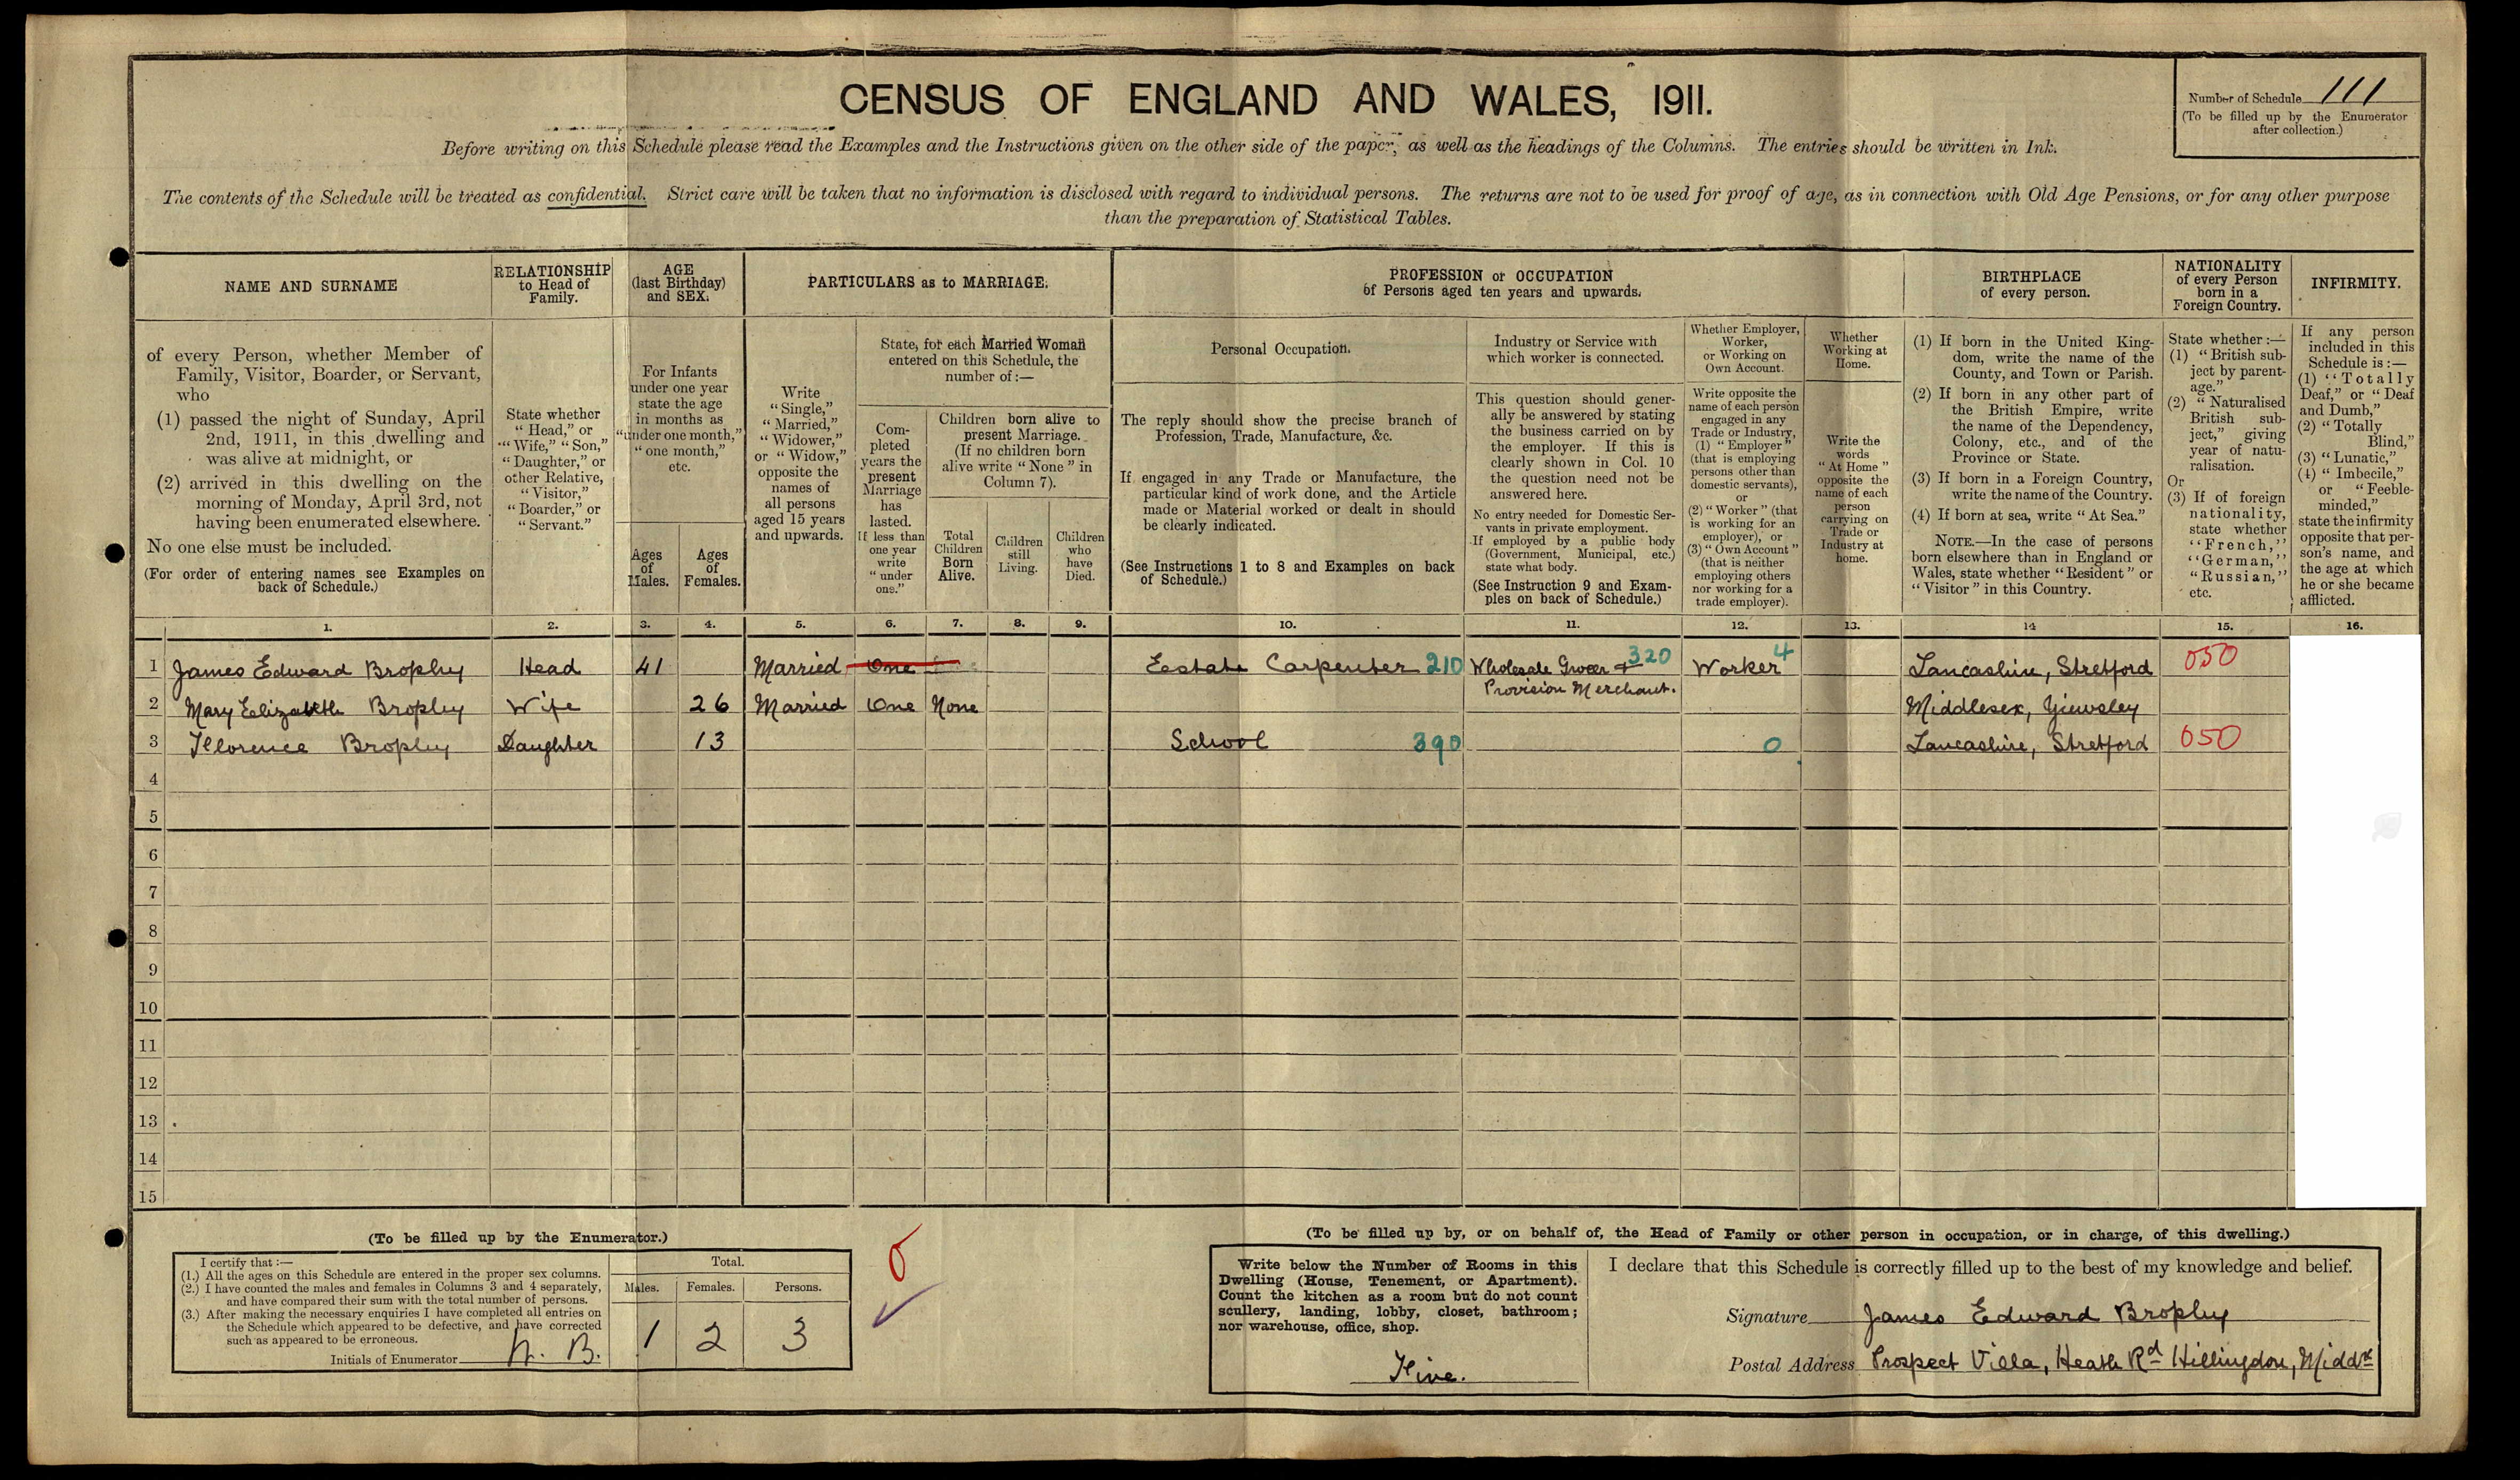 CENSUS OF ENGLAND AND WALES, 1911.
Number of Schedule 111
(To be filled up by the Enumerator
after collection.)
Before writing on this Schedule please read the Examples and the Instructions given on the other side of the paper, as well as the headings of the Columns. The entries should be written in Ink.
The contents of the Schedule will be treated as confidential. Strict care will be taken that no information is disclosed with regard to individual persons. The returns are not to be used for proof of age, as in connection with Old Age Pensions, or for any other purpose
than the preparation of Statistical Tables.
NAME AND SURNAME
of every Person, whether Member of
Family, Visitor, Boarder, or Servant,
who
(1) passed the night of Sunday, April
2nd, 1911, in this dwelling and
was alive at midnight, or
(2) arrived in this dwelling on the
morning of Monday, April 3rd, not
having been enumerated elsewhere.
No one else must be included.
(For order of entering names see Examples on
back of Schedule.)
RELATIONSHIP
to Head of
Family.
State whether
"Head," or
"Wife," "Son,"
"Daughter," or
other Relative,
"Visitor,"
"Boarder," or
"Servant."
AGE
(last Birthday)
and SEX.
For Infants
under one year
state the age
in months as
"under one month,"
"one month,"
etc.
Ages
of
Males.
Ages
of
Females.
PARTICULARS as to MARRIAGE.
Write
"Single,"
"Married,"
"Widower,"
or "Widow,"
opposite the
names of
all persons
aged 15 years
and upwards.
State, for each Married Woman
entered on this Schedule, the
number of:—
Com-
pleted
years the
present
Marriage
has
lasted.
If less than
one year
write
"under
one."
Children born alive to
present Marriage.
(If no children born
alive write "None" in
Column 7).
Total
Children
Born
Alive.
Children
still
Living.
Children
who
have
Died.
PROFESSION or OCCUPATION
of Persons aged ten years and upwards.
Personal Occupation.
The reply should show the precise branch of
Profession, Trade, Manufacture, &c.
If engaged in any Trade or Manufacture, the
particular kind of work done, and the Article
made or Material worked or dealt in should
be clearly indicated.
(See Instructions 1 to 8 and Examples on back
of Schedule.)
Industry or Service with
which worker is connected.
This question should gener-
ally be answered by stating
the business carried on by
the employer. If this is
clearly shown in Col. 10
the question need not be
answered here.
No entry needed for Domestic Ser-
vants in private employment.
If employed by a public body
(Government, Municipal, etc.)
state what body.
(See Instruction 9 and Exam-
ples on back of Schedule.)
Whether Employer,
Worker,
or Working on
Own Account.
Write opposite the
name of each person
engaged in any
Trade or Industry,
(1) "Employer"
(that is employing
persons other than
domestic servants),
or
(2) "Worker" (that
is working for an
employer), or
(3) "Own Account"
(that is neither
employing others
nor working for a
trade employer).
Whether
Working at
Home.
Write the
words
"At Home"
opposite the
name of each
person
carrying on
Trade or
Industry at
home.
BIRTHPLACE
of every person.
(1) If born in the United King-
dom, write the name of the
County, and Town or Parish.
(2) If born in any other part of
the British Empire, write
the name of the Dependency,
Colony, etc., and of the
Province or State.
(3) If born in a Foreign Country,
write the name of the Country.
(4) If born at sea, write "At Sea."
NOTE.—In the case of persons
born elsewhere than in England or
Wales, state whether "Resident" or
"Visitor" in this Country.
NATIONALITY
of every Person
born in a
Foreign Country.
State whether:—
(1) "British sub-
ject by parent-
age."
(2) "Naturalised
British sub-
ject," giving
year of natu-
ralisation.
Or
(3) If of foreign
nationality,
state whether
"French,"
"German,"
"Russian,"
etc.
INFIRMITY.
If any person
included in this
Schedule is:—
(1) "Totally
Deaf," or "Deaf
and Dumb,"
(2) "Totally
Blind,"
(3) "Lunatic,"
(4) "Imbecile,"
or "Feeble-
minded,"
state the infirmity
opposite that per-
son's name, and
the age at which
he or she became
afflicted.
1. 2. 3. 4. 5. 6. 7. 8. 9. 10. 11. 12. 13. 14 15. 16.
1 James Edward Brophy Head 41 Married One Estate Carpenter 210 Wholesale Grocer & 320 Worker 4 Lancashire, Stretford 050
Provision Merchant.
2 Mary Elizabeth Brophy Wife 26 Married One None Middlesex, Yiewsley
3 Florence Brophy Daughter 13 School 390 0 Lancashire, Stretford 050
4
5
6
7
8
9
10
11
12
13
14
15
(To be filled up by the Enumerator.)
I certify that:—
(1.) All the ages on this Schedule are entered in the proper sex columns.
(2.) I have counted the males and females in Columns 3 and 4 separately,
and have compared their sum with the total number of persons.
(3.) After making the necessary enquiries I have completed all entries on
the Schedule which appeared to be defective, and have corrected
such as appeared to be erroneous.
Initials of Enumerator
Total.
Males. Females. Persons.
1 2 3
(To be filled up by, or on behalf of, the Head of Family or other person in occupation, or in charge, of this dwelling.)
Write below the Number of Rooms in this
Dwelling (House, Tenement, or Apartment).
Count the kitchen as a room but do not count
scullery, landing, lobby, closet, bathroom;
nor warehouse, office, shop.
Five.
I declare that this Schedule is correctly filled up to the best of my knowledge and belief.
Signature James Edward Brophy
Postal Address Prospect Villa, Heath Rd Hillingdon, Middx